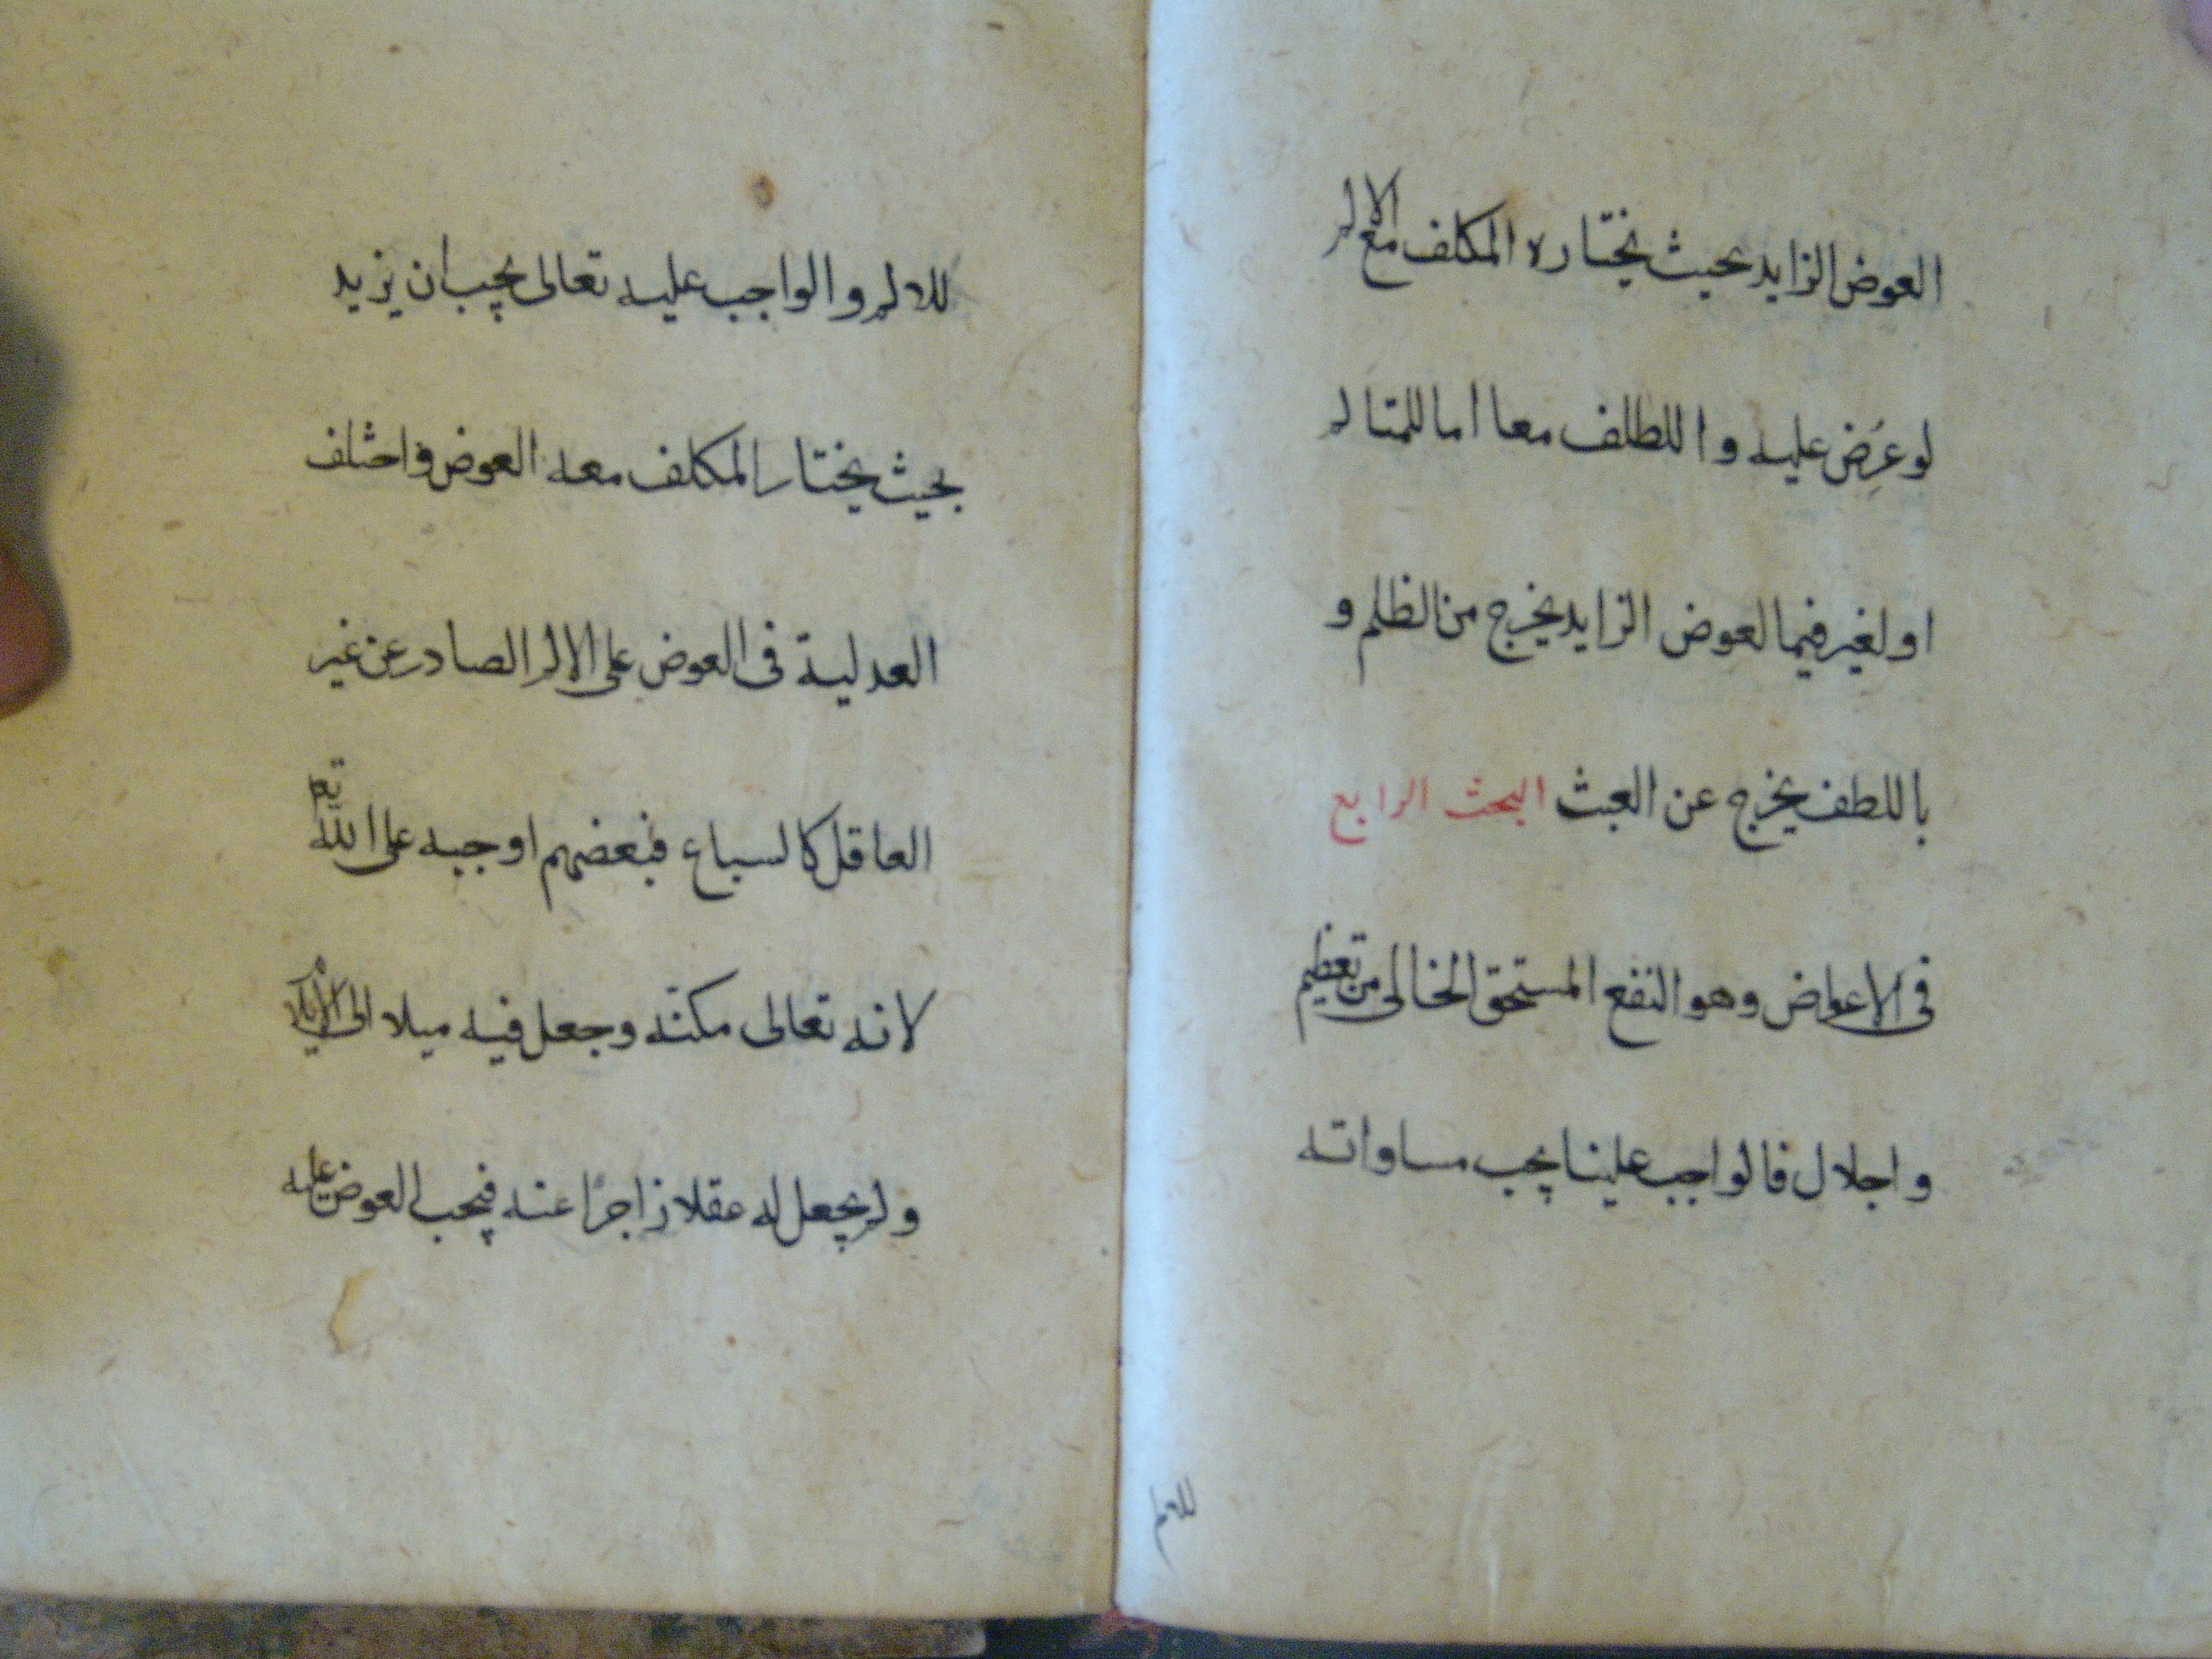 العوض الزايد بحيث يختاره المكلف مع الالم
لو عرض عليه واللطلف معا اما للمتالم
او لغير فيما لعوض الزايد يخرج من الظلم و
باللطف يخرج عن العبث البحث الرابع
فى الاعواض وهو النفع المستحق الخالى من تعظيم
واجلال فالواجب علينا يجب مساواته
للالم
للالم والواجب عليه تعالى يجب ان يزيد
بحيث يختار المكلف معه العوض واختلف
العدلية فى العوض على الالم الصادر عن غير
العاقل كالسباع فبعضهم اوجبه على الله تع
لانه تعالى مكنه وجعل فيه ميلا الى الايلام
ولم يجعل له عقلا زاجرًا عنه فيجب العوض عليه